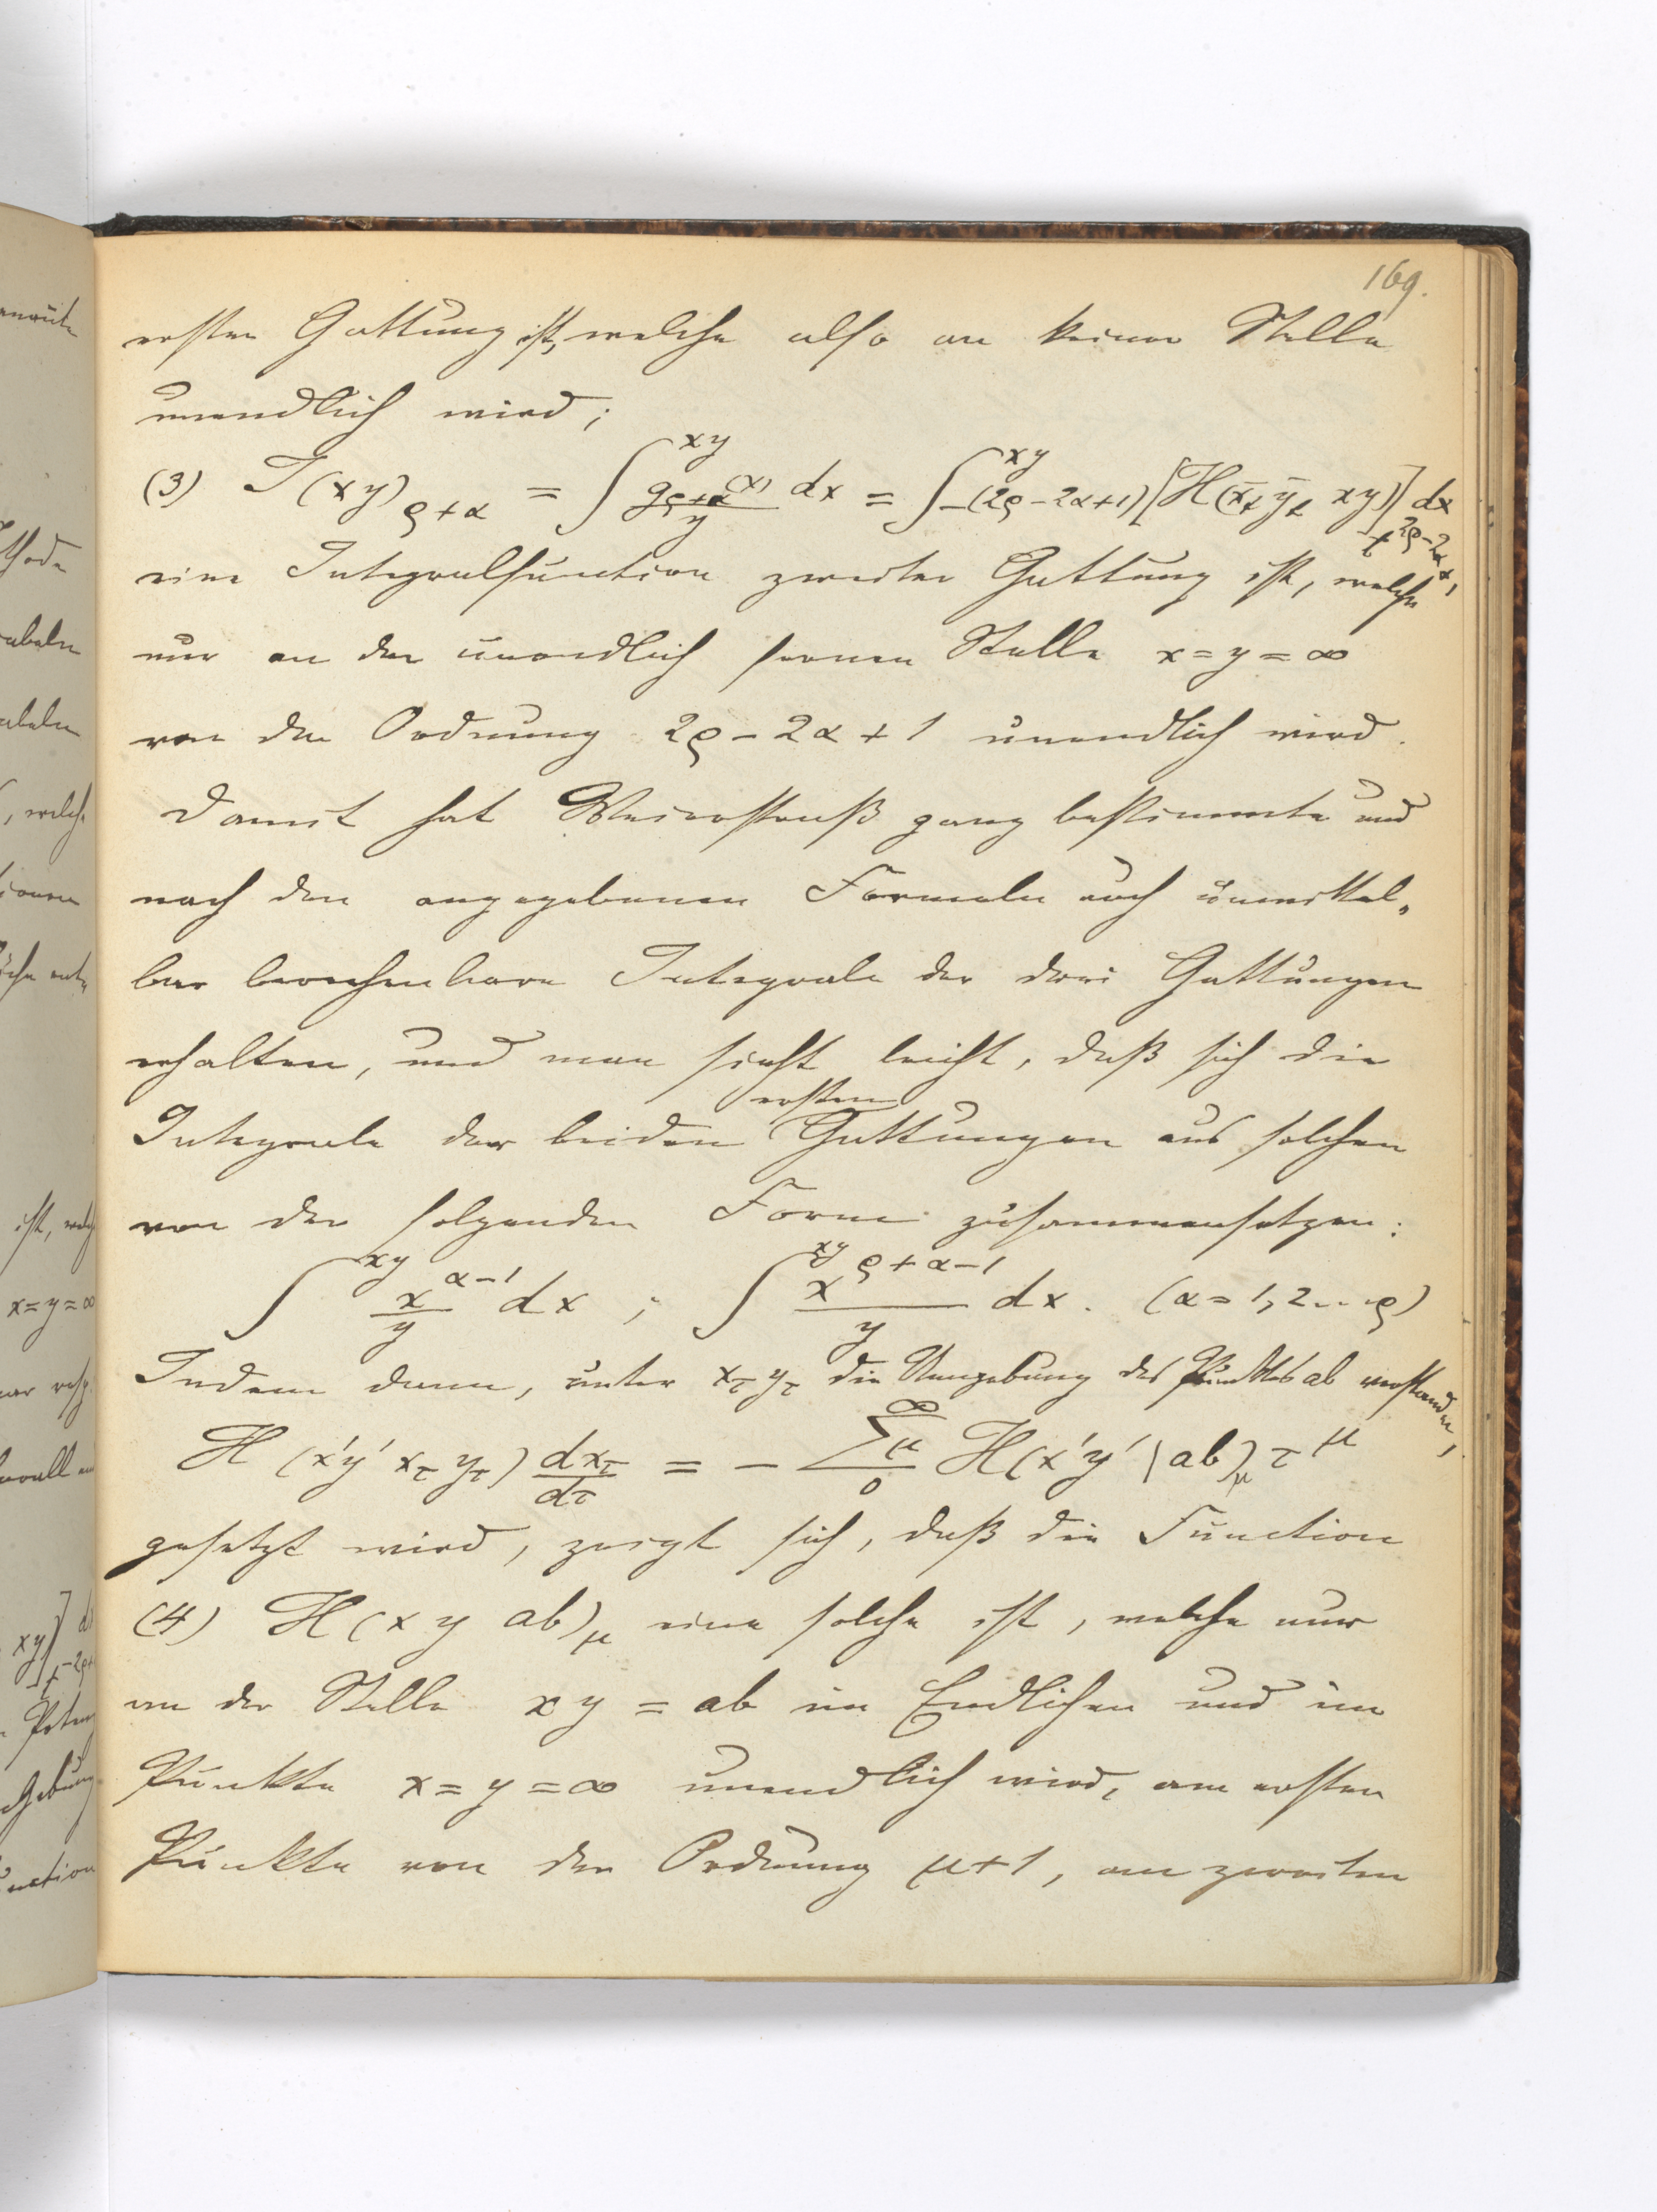 169.
ersten Gattung ist, welche also an keiner Stelle
unendlich wird;
(3) J(xy)ρ+α = ∫^xy gρ+α(x)/y dx = ∫^xy -(2ρ-2α+1)[H(x̄t ȳt xy)] t^2ρ-2α+1 dx
eine Integralfunction zweiter Gattung ist, welche
nur an der unendlich fernen Stelle x=y=∞
von der Ordnung 2ρ-2α+1 unendlich wird.
Damit hat Weierstraß ganz bestimmte und
nach den angegebenen Formeln auch unmittel„
bar berechenbare Integrale der drei Gattungen
erhalten, und man sieht leicht, daß sich die
Integrale der beiden ersten Gattungen aus solchen
von der folgenden Form zusammensetzen:
∫^xy x^α-1/y dx ; ∫^xy x^ρ+α-1/y dx. (α=1,2...ρ)
Indem dann, unter xτ yτ die Umgebung des Punktes ab verstanden,
H(x'y' xτ yτ) dxτ/dτ = - ∑μ 0 ∞ H(x'y' | ab)μ τ^μ
gesetzt wird, zeigt sich, daß die Function
(4) H(xy ab)μ eine solche ist, welche nur
an der Stelle xy = ab im Endlichen und im
Punkte x=y=∞ unendlich wird, am ersten
Punkte von der Ordnung μ+1, am zweiten